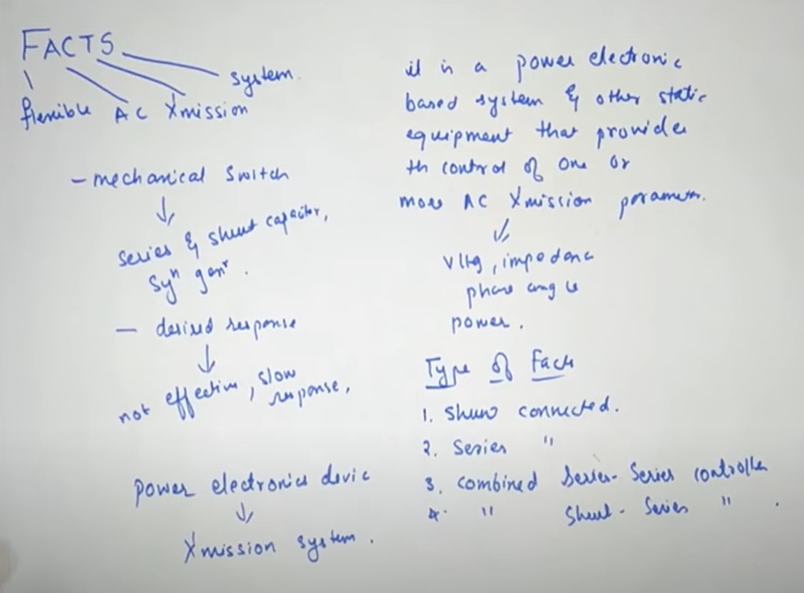 FACTS
system.
flexible AC Xmission
- mechanical Switch
↓
series & shunt capacitor,
synⁿ genʳ.
- desired response
↓
not effective, slow
response,
power electronics devic
↓
Xmission system.
it is a power electronic
based system & other static
equipment that provide
th control of one or
more AC Xmission parameter.
↓
Vltg, impedanc
phase angle
power.
Type of Facts
1. Shunt connected.
2. Series "
3. Combined Series-Series controller
4. " Shunt-Series " .